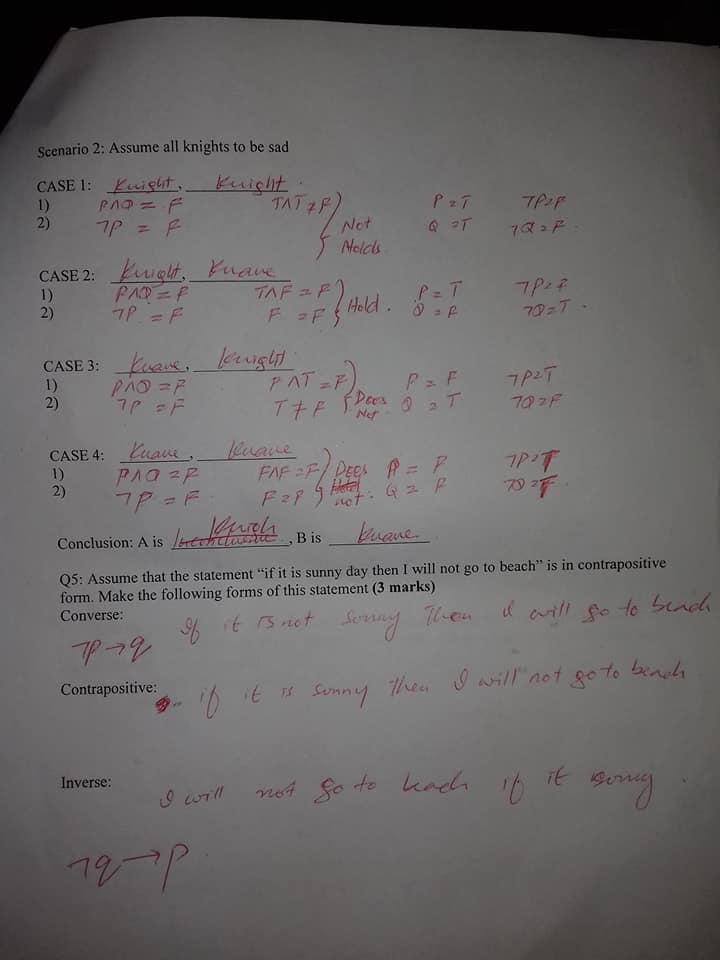 Scenario 2: Assume all knights to be sad
CASE 1: Knight, Knight
1) P∧Q = F T∧T ≠ F } P = T ¬P=F
2) ¬P = F Not Holds Q = T ¬Q = F
CASE 2: Knight, Knave
1) P∧Q = F T∧F = F } Hold. P = T ¬P=F
2) ¬P = F F = F Q = F ¬Q=T
CASE 3: Knave, Knight
1) P∧Q = F F∧T = F } Does Not P = F ¬P=T
2) ¬P = F T ≠ F Q = T ¬Q=F
CASE 4: Knave, Knave
1) P∧Q = F F∧F = F } Does not. P = F ¬P=T
2) ¬P = F F = F Q = F ¬Q=T
Conclusion: A is Knigh, B is Knave.
Q5: Assume that the statement “if it is sunny day then I will not go to beach” is in contrapositive
form. Make the following forms of this statement (3 marks)
Converse:
¬P→q If it is not sunny Then I will go to beach
Contrapositive: if it is sunny then I will not go to beach
Inverse:
I will not go to beach if it sunny.
¬q→p